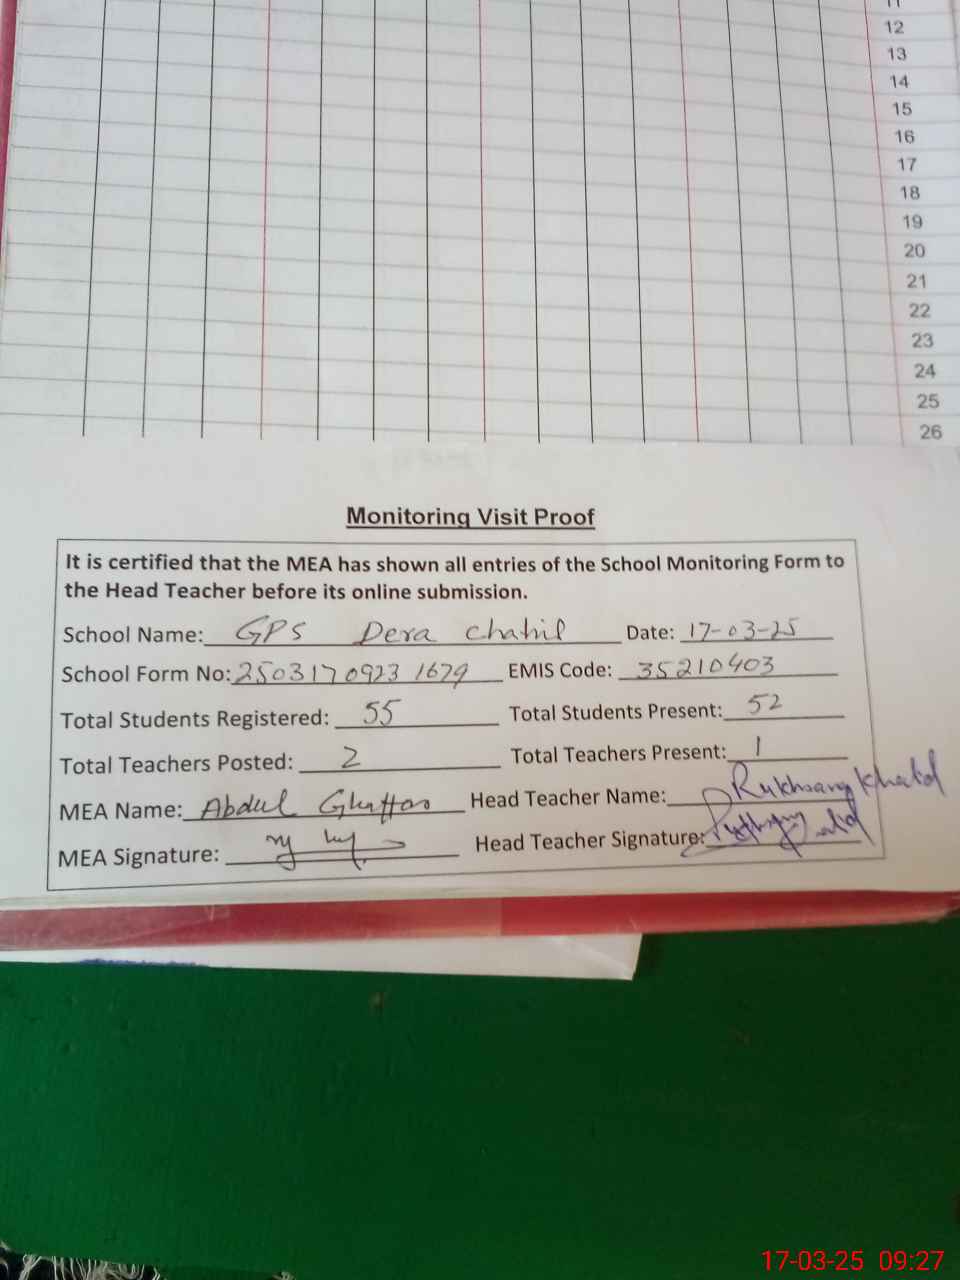 11
12
13
14
15
16
17
18
19
20
21
22
23
24
25
26
Monitoring Visit Proof
It is certified that the MEA has shown all entries of the School Monitoring Form to
the Head Teacher before its online submission.
School Name: GPS Dera Chahil Date: 17-03-25
School Form No: 2503170923 1679 EMIS Code: 35210403
Total Students Registered: 55 Total Students Present: 52
Total Teachers Posted: 2 Total Teachers Present: 1
MEA Name: Abdul Ghaffar Head Teacher Name: Rukhsana Khalid
MEA Signature: Head Teacher Signature:
17-03-25 09:27